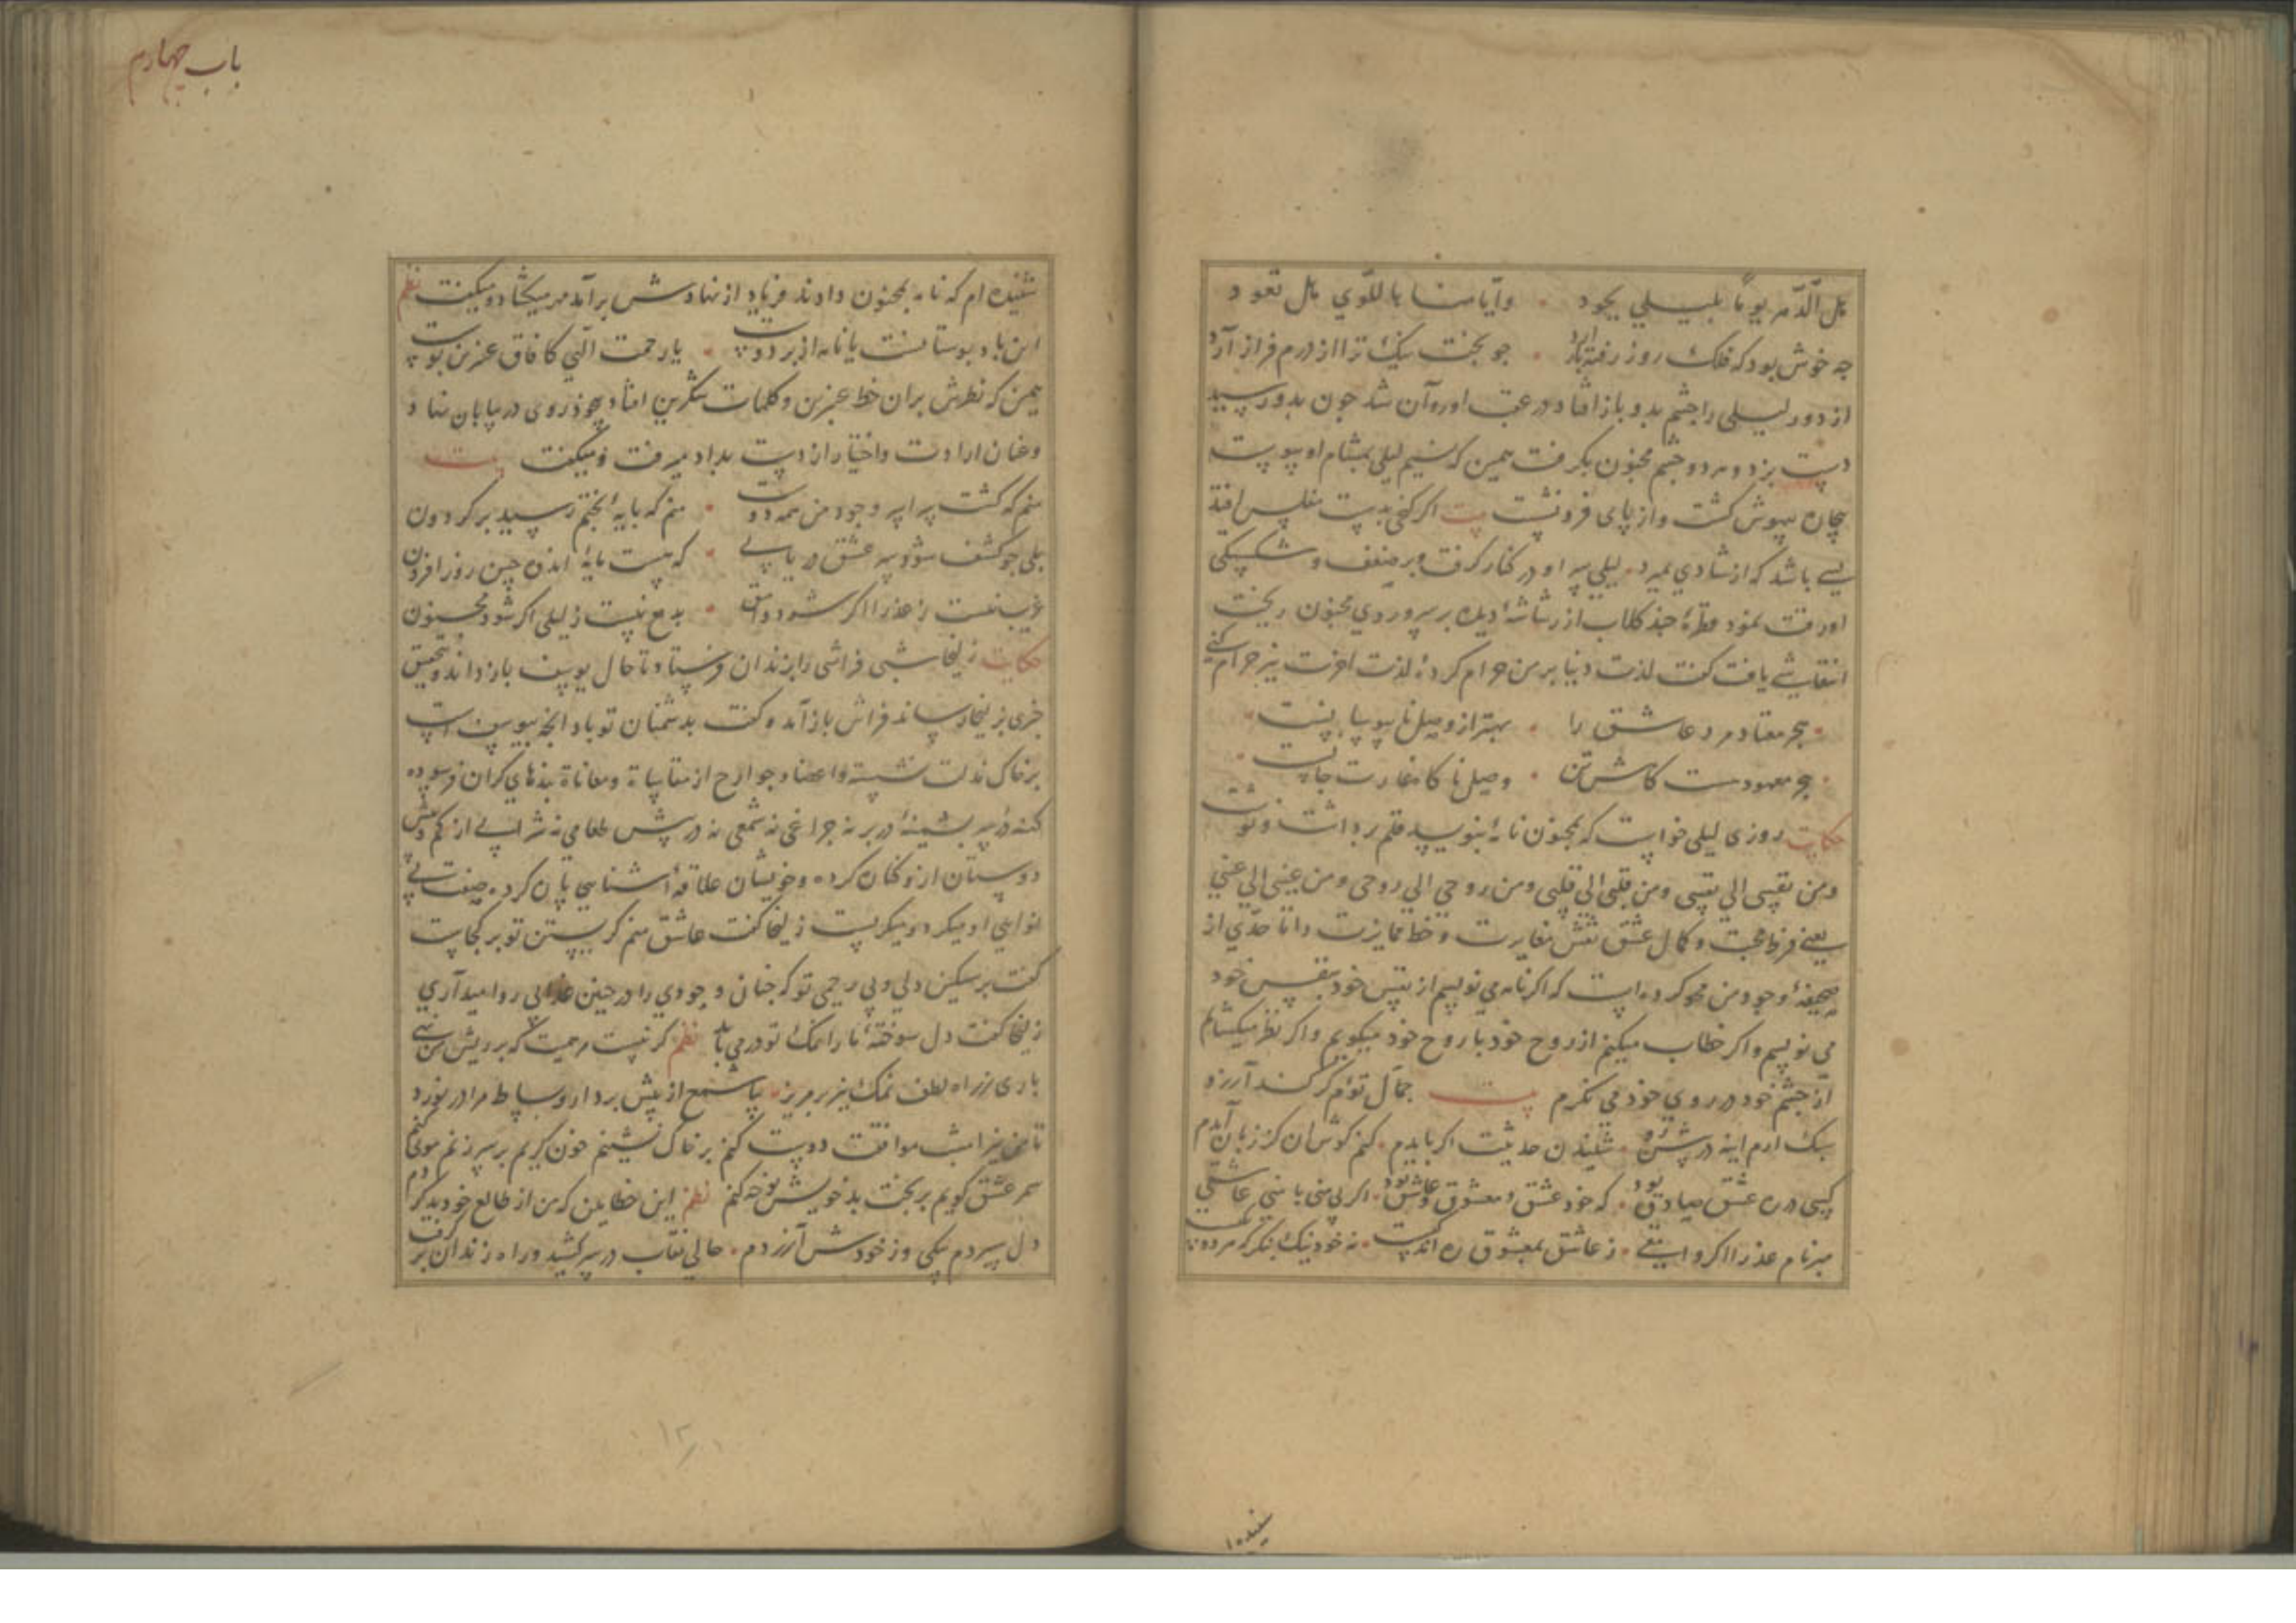 هل الدهر یوما بلیلی یجود وایامنا باللوی هل تعود
چه خوش بود که فلک روز رفته باز آرد چو بخت نیک ترا از درم فراز آرد
از دور لیلی را چشم بدو باز افتاد در عقب او روان شد چون بدو رسید
دست بزد و هر دو چشم مجنون بگرفت همین که نسیم لیلی بمشام او پیوست
بیچاره بیهوش گشت و از پای فرو نشست بیت اگر گنجی بدست مفلس افتد
بسی باشد که از شادی بمیرد لیلی سر او در کنار گرفت و بر ضعف و شکستگی
او رقت نمود قطرهٔ چند گلاب از رشاشهٔ دیده بر سر و روی مجنون ریخت
انتعاشی یافت گفت لذت دنیا بر من حرام کردهٔ لذت آخرت نیز حرام کنی
هجر معتاد مرد عاشق را بهتر از وصل ناپیوسته
هجر معهودست کاهش تن وصل ناگاه غارت جانست
حکایت روزی لیلی خواست که بمجنون نامهٔ بنویسد قلم برداشت و نوشت
و من نفسی الی نفسی و من قلبی الی قلبی و من روحی الی روحی و من عینی الی عینی
یعنی فرط محبت و کمال عشق نقش مغایرت و خط تمایزت و انا حدی از
صحیفهٔ وجود من محو کرده است که اگر نامه می نویسم از نفس خود بنفس خود
می نویسم و اگر خطاب میکنم از روح خود با روح خود میگویم و اگر نظر میگشایم
از چشم خود در روی خود می نگرم بیت جمال توام گر کند آرزو
سبک آرم اینه در پیش رو شنیدن حدیثت اگر بایدم کنم گوش آن کز زبان آیدم
کسی در ره عشق صادق بود که خود عشق و معشوق و عاشق بود اگر لیلی منی با منی عاشقی
مبر نام عذرا اگر وامقی ز عاشق بمعشوق ره اندکیست نه خود نیک بنگر که هر دو یکیست
شنیده‌ام
باب چهارم
شنیده ام که نامه بمجنون دادند فریاد از نهادش برآمد مهر میگشاد و میگفت نظم
این باد بوستانست یا نامه از بر دوست یا رحمت الهی کافاق عنبرین بوست
همین که نظرش بران خط عنبرین و کلمات شکرین افتاد چو ذره روی در بیابان نهاد
و عنان ارادت و اختیار از دست بداد میرفت و میگفت بیت
منم که گشت سراسر وجود من همه دوست منم که پایهٔ بختم رسید بر گردون
بلی چو کشف شود سر عشق دریابی که هست مایهٔ اندوه چنین روز افزون
غریب نیست ز عذرا اگر شود وامق بدیع نیست ز لیلی اگر شود مجنون
حکایت زلیخا شبی فراشی را بزندان فرستاد تا حال یوسف باز داند و تحقیق
خبری بزلیخا رساند فراش باز آمد و گفت بدشمنان تو باد آنچه بیوسف است
بر خاک مذلت نشسته و اعضا و جوارح از مقاساة و معاناة بندهای گران فرسوده
کهنهٔ در سر پشمینهٔ در بر نه چراغی نه شمعی نه در پیش طعامی نه شرابی از کم و بیش
دوستان ازو کناره کرده و خویشان علاقهٔ آشنایی پاره کرده صفت بی
نوایی او میکرد و میگریست زلیخا گفت عاشق منم گریستن تو بر کجاست
گفت بر سنگین دلی و بی رحمی تو که چنان وجودی را در چنین عذابی روا میداری
زلیخا گفت دل سوختهٔ ما را نمک تو در می باید نظم گر نیست مرهمیت که بر ریش من نهی
باری ز راه لطف نمک نیز بر مریز بیا شمع از پیش بردار و بساط مرا در نورد
تا من نیز امشب موافقت دوست کنم بر خاک نشینم خون گریم بر سر زنم مویه کنم
سر عشق گویم بر بخت بد خویش نوحه کنم نظم این خطا بین که من از طالع خود بد کردم
دل سپردم بیکی وز خودش آزردم حالی نقاب در سر کشید و راه زندان بر گرفت
۱۳